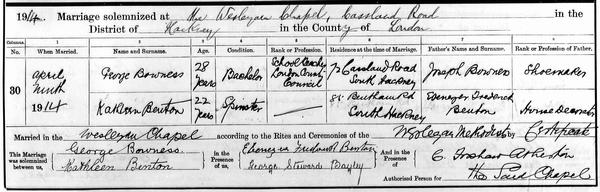 1914. Marriage solemnized at the Wesleyan Chapel, Cassland Road in the
District of Hackney in the County of London.
Columns:— 1 2 3 4 5 6 7 8
No. When Married. Name and Surname. Age. Condition. Rank or Profession. Residence at the time of Marriage. Father's Name and Surname. Rank or Profession of Father.
30 April Ninth 1914 George Bowness 28 years Bachelor School London County Council Cassland Road South Hackney Joseph Bowness Shoemaker
Kathleen Benton 22 years Spinster Road South Hackney Ebenezer Frederick Benton House Decorator
Married in the Wesleyan Chapel according to the Rites and Ceremonies of the Wesleyan Methodists by
This Marriage was solemnized between us, George Bowness Kathleen Benton in the Presence of us, Ebenezer Frederick Benton George Steward Bayley And in the Presence of C. Atherton Authorised Person for the Said Chapel